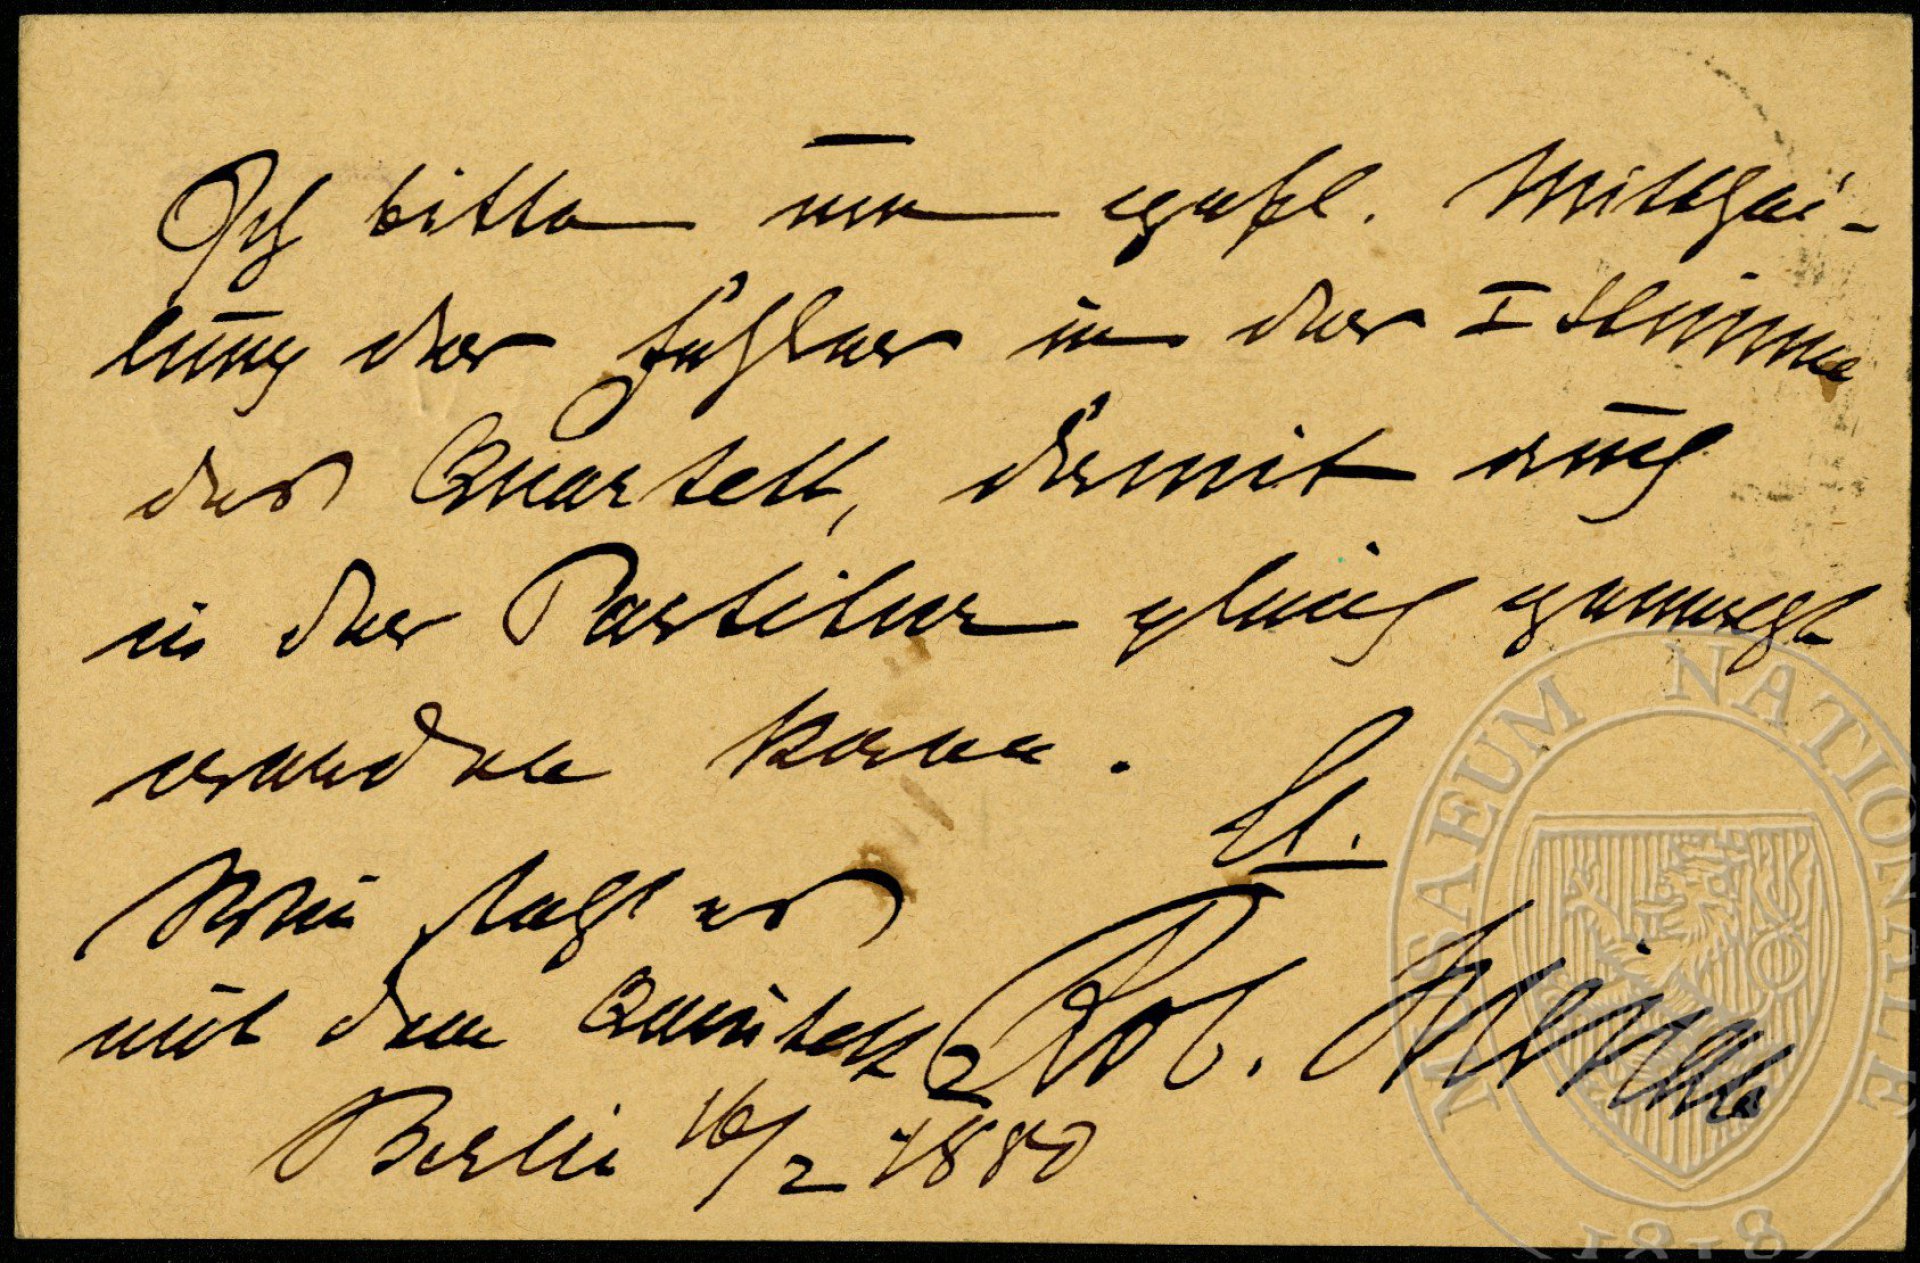 Ich bitte um gefl. Mitthei-
lung der Fehler in der I Stimme
des Quartett, damit auch
in der Partitur gleich gemacht
werden kann.
Wie steht es
mit dem Quintett?
Rob.
Berlin 16/2 1880
MUSAEUM NATIONALE
1818